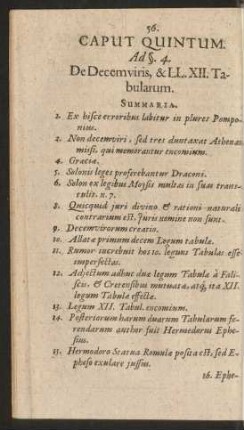 56.
CAPUT QUINTUM.
Ad §. 4.
De Decemviris, & LL. XII. Ta-
bularum.
SUMMARIA.
1. Ex hisce erroribus labitur in plures Pompo-
nius.
2. Non decemviri, sed tres duntaxat Athenas
missi. qui memorantur encomium.
4. Græciæ.
5. Solonis leges præferebantur Draconi.
6. Solon ex legibus Moysis multas in suas trans-
tulit. n. 7.
8. Quicquid juri divino & rationi naturali
contrarium est. Juris nomine non sunt.
9. Decemvirorum creatio.
10. Allatæ primum decem Legum tabulæ.
11. Rumor increbuit hasce legum Tabulas esse
imperfectas.
12. Adjectum adhuc duæ legum Tabulæ à Fali-
scis, & Cretensibus mutuatæ. atq, ita XII.
legum Tabulæ effectæ.
13. Legum XII. Tabul. encomium.
14. Posteriorum harum duarum Tabularum fe-
rendarum author fuit Hermodorus Ephe-
sius.
15. Hermodoro Statua Romulæ posita est, sed E-
pheso exulare jussus.
16. Ephe-